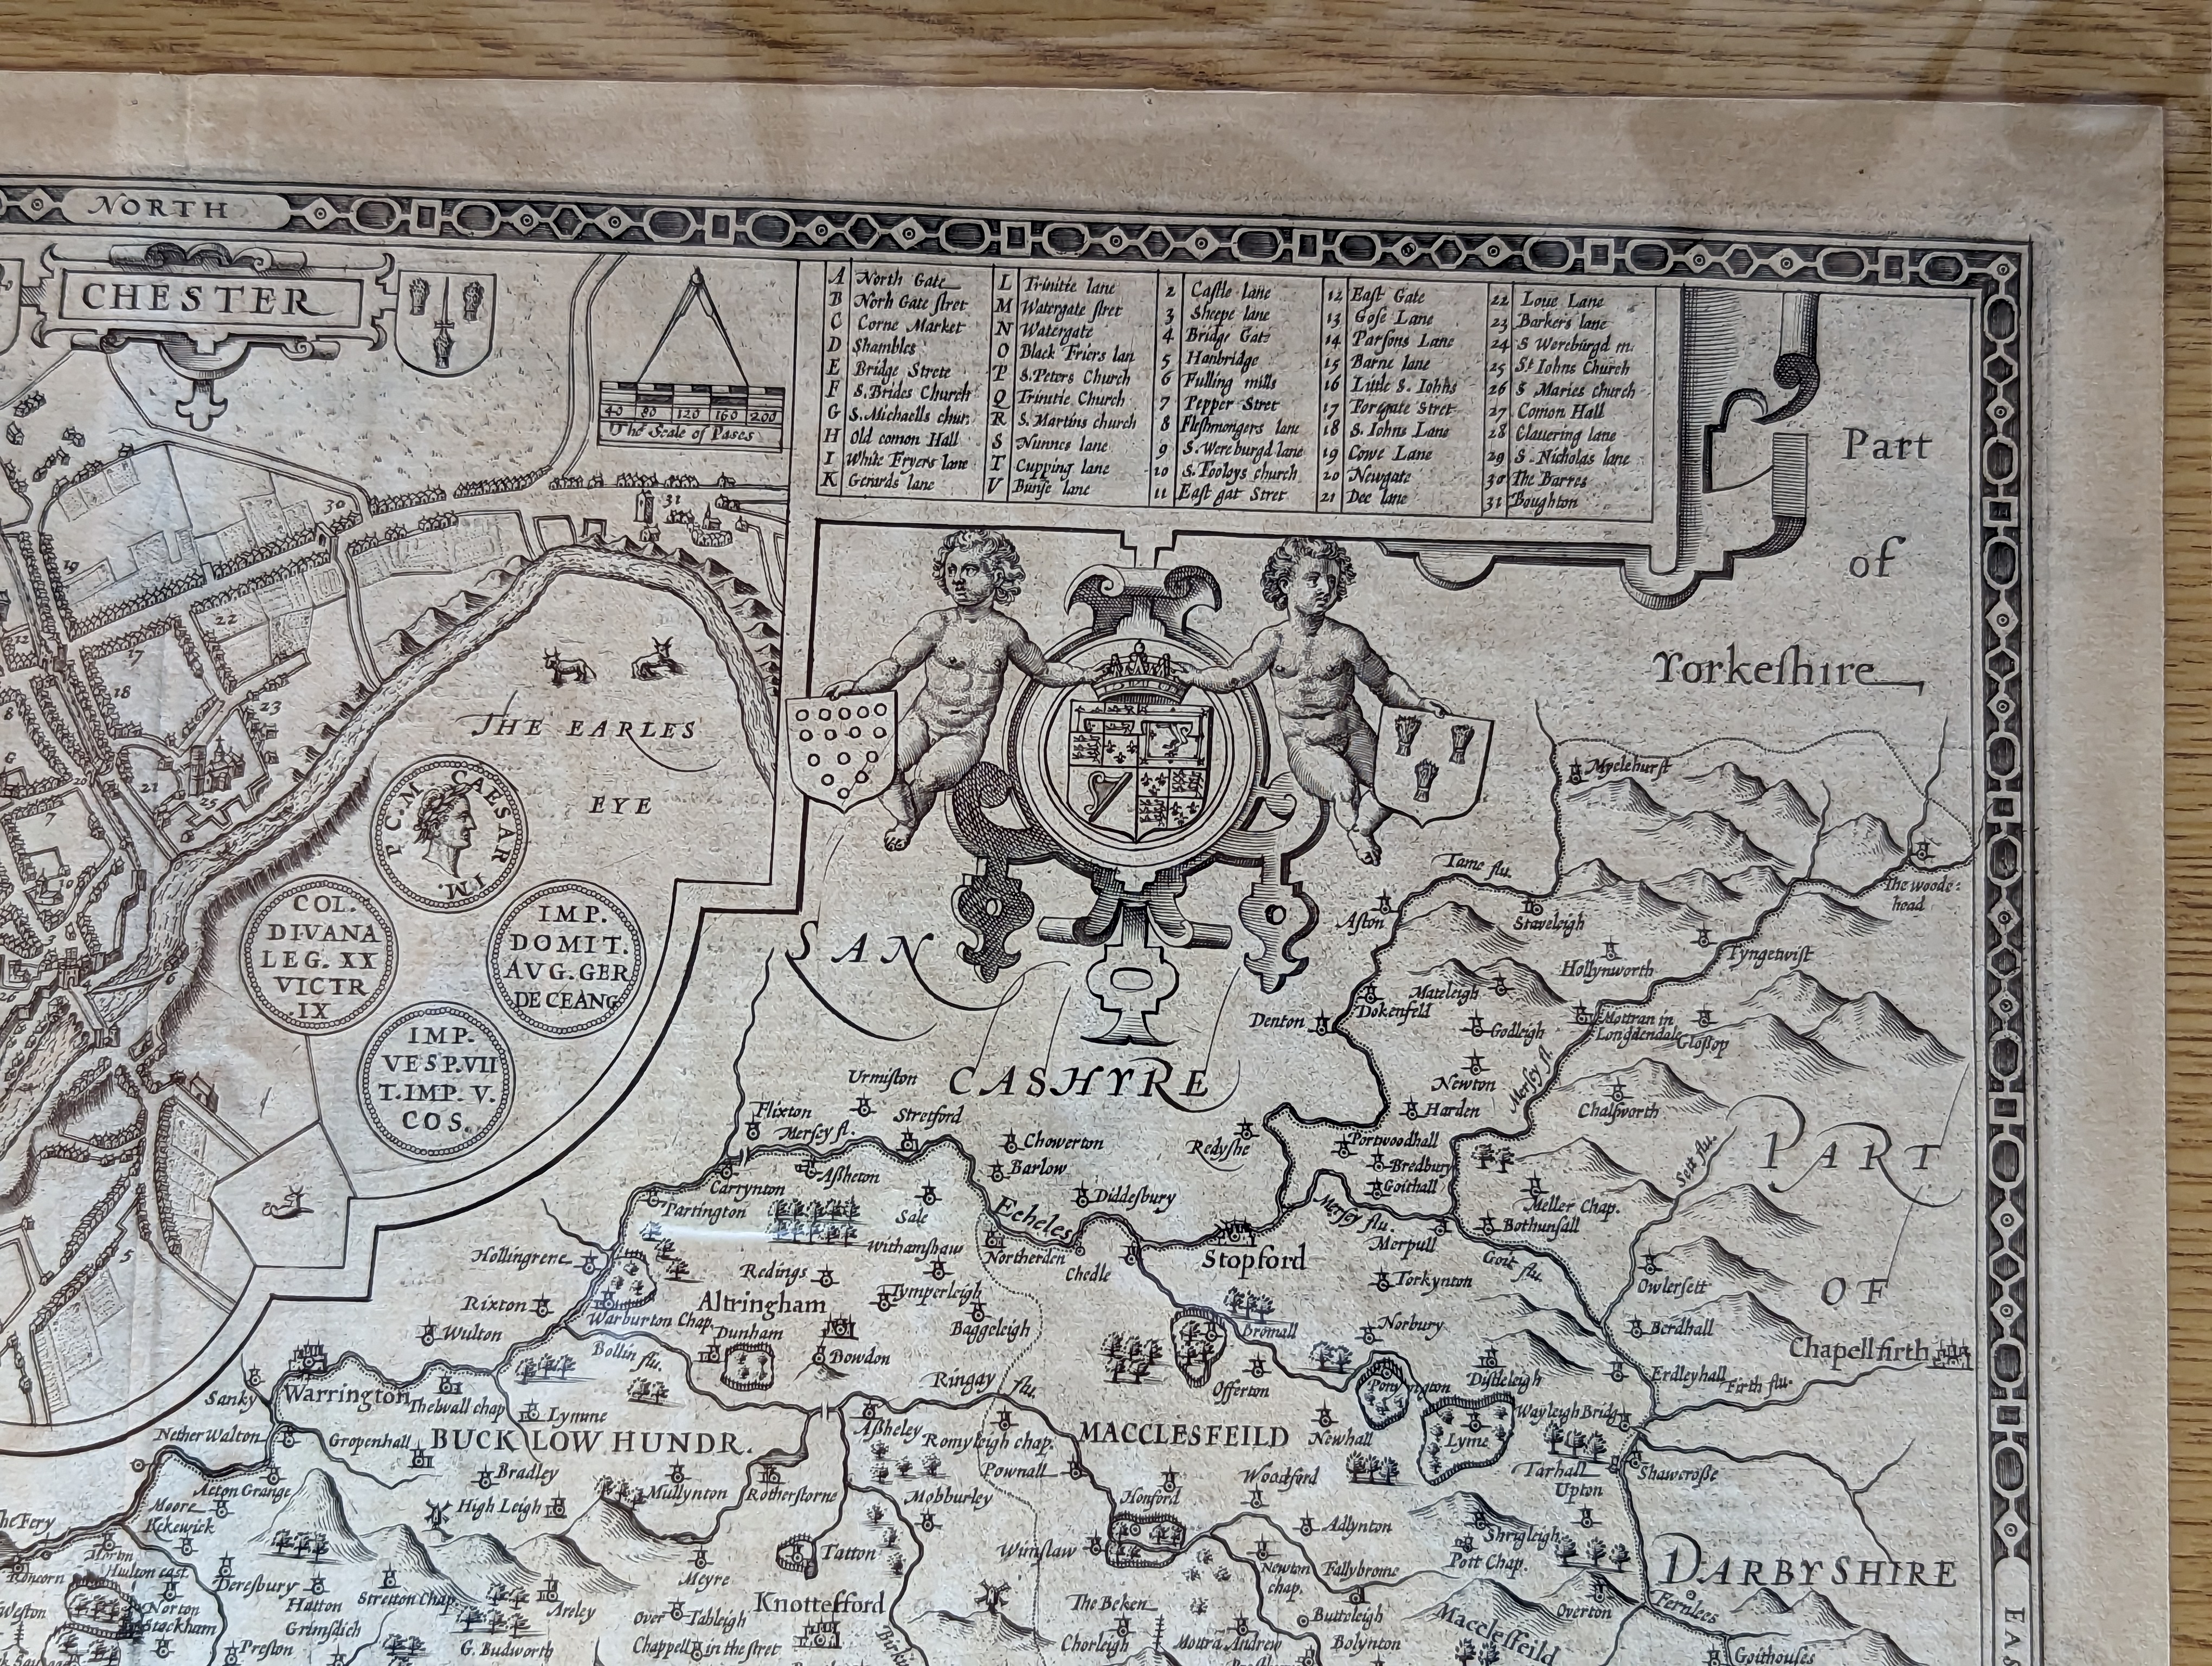 NORTH
CHESTER
40 80 120 160 200
The Scale of Pases
A North Gate
B North Gate stret
C Corne Market
D Shambles
E Bridge Strete
F S. Brides Church
G S. Michaells chur.
H Old comon Hall
I White Fryers lane
K Gerards lane
L Trinitie lane
M Watergate stret
N Watergate
O Black Friers lan
P S. Peters Church
Q Trinitie Church
R S. Martins church
S Nunnes lane
T Cupping lane
V Bunse lane
2 Castle lane
3 Sheepe lane
4 Bridge Gate
5 Hanbridge
6 Fulling mills
7 Pepper Stret
8 Fleshmongers lane
9 S. Wereburgd lane
10 S. Tooleys church
11 East gat Stret
12 East Gate
13 Gose Lane
14 Parsons Lane
15 Barne lane
16 Little S. Iohns
17 Forgate Stret
18 S. Iohns Lane
19 Cowe Lane
20 Newgate
21 Dee lane
22 Loue Lane
23 Barkers lane
24 S Wereburgd m.
25 St Iohns Church
26 S Maries church
27 Comon Hall
28 Clauering lane
29 S. Nicholas lane
30 The Barres
31 Boughton
Part
of
Yorkeshire
30
31
19
22
12
17
18
8
23
21
25
7
10
3
4
6
26
5
THE EARLES
EYE
IM. P C. M. CAESAR
COL.
DIVANA
LEG. XX
VICTR
IX
IMP.
DOMIT.
AVG. GER
DE CEANG
IMP.
VESP. VII
T. IMP. V.
COS.
SAN
CASHYRE
Myclehurst
Tame flu.
The woode:
head
Aston
Staveleigh
Hollynworth
Tyngetwist
Mateleigh
Dokenfeld
Denton
Godleigh
Mottran in
Longdendale
Glossop
Newton
Mersey fl.
Harden
Chalsworth
PART
OF
DARBYSHIRE
Urmiston
Flixton
Mersey fl.
Stretford
Chowerton
Redyshe
Portwoodhall
Bredbury
Goithall
Barlow
Assheton
Carrynton
Partington
Sale
Diddesbury
Echeles
Sett flu.
Meller Chap.
Bothumsall
Mersey flu.
Merpull
Stopford
Hollingrene
Withamshaw
Northerden
Chedle
Goit flu.
Torkynton
Owlersett
Redings
Tymperleigh
Altringham
Rixton
Warburton Chap.
Baggeleigh
Wulton
Dunham
Bowdon
Bollin flu.
Bromall
Norbury
Berdhall
Chapellfirth
Offerton
Distleigh
Ringay flu.
Erdleyhall
Firth flu.
Sanky
Warrington
Thelwall chap
Lymme
Wayleigh Bridg
Nether Walton
Gropenhall
BUCKLOW HUNDR.
Assheley
Romyleigh chap.
MACCLESFEILD
Newhall
Lyme
Bradley
Pownall
Woodford
Tarhall
Shawcrosse
Acton Grange
Mullynton
Rotherstorne
Upton
Moore
High Leigh
Mobburley
Honford
Kekewick
Adlynton
Shrigleigh
Pott Chap.
Tatton
Winslaw
Newton
chap.
Fallybrome
Meyre
Deresbury
Hatton
Stretton Chap.
Areley
Over Tableigh
Knottesford
The Beken
Butteleigh
Overton
Fernlees
Roncorn
Weston
Norton
Stockham
Grimsdich
Preston
G. Budworth
Chappell in the stret
Chorleigh
Bolynton
Macclesfeild
Goithouses
EAS